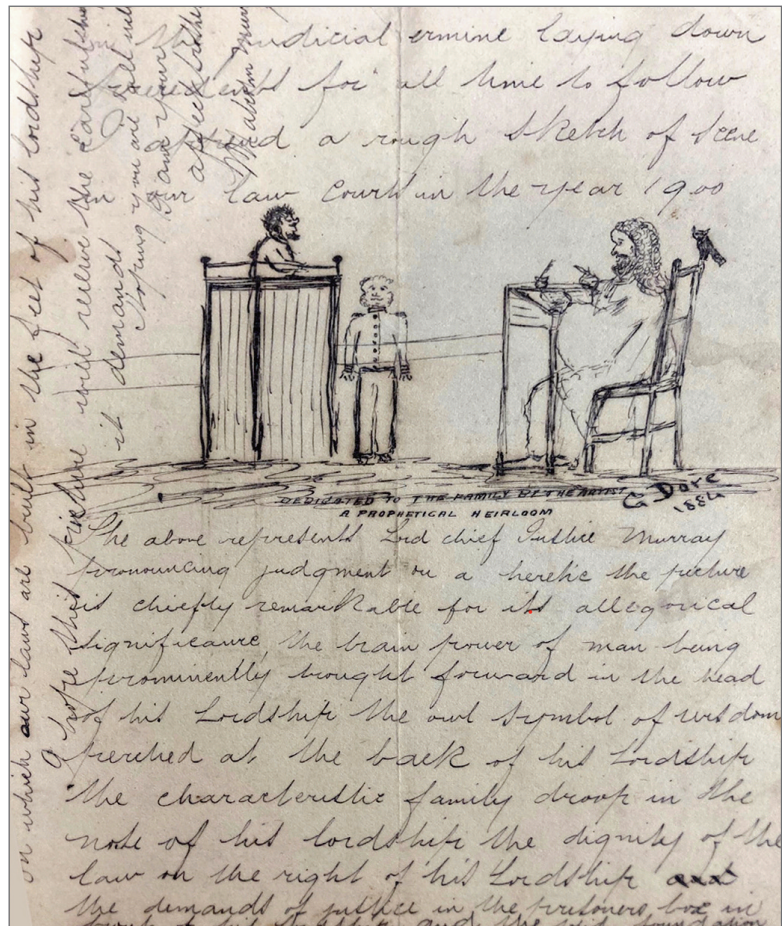 the judicial ermine laying down
precedents for all time to follow
I append a rough sketch of scene
in our law court in the year 1900
DEDICATED TO THE FAMILY BY THE ARTIST
A PROPHETICAL HEIRLOOM
G Dore
1884
The above represents Lord chief Justice Murray
pronouncing judgment on a heretic the picture
is chiefly remarkable for its allegorical
significance, the brain power of man being
prominently brought forward in the head
of his Lordship the owl symbol of wisdom
perched at the back of his Lordship
the characteristic family droop in the
nose of his lordship the dignity of the
law on the right of his Lordship and
the demands of justice in the prisoners box in
of his and the foundation
on which our laws are built in the feet of his lordship
I hope this picture will receive the
it demands
Hoping you are all well
I am your